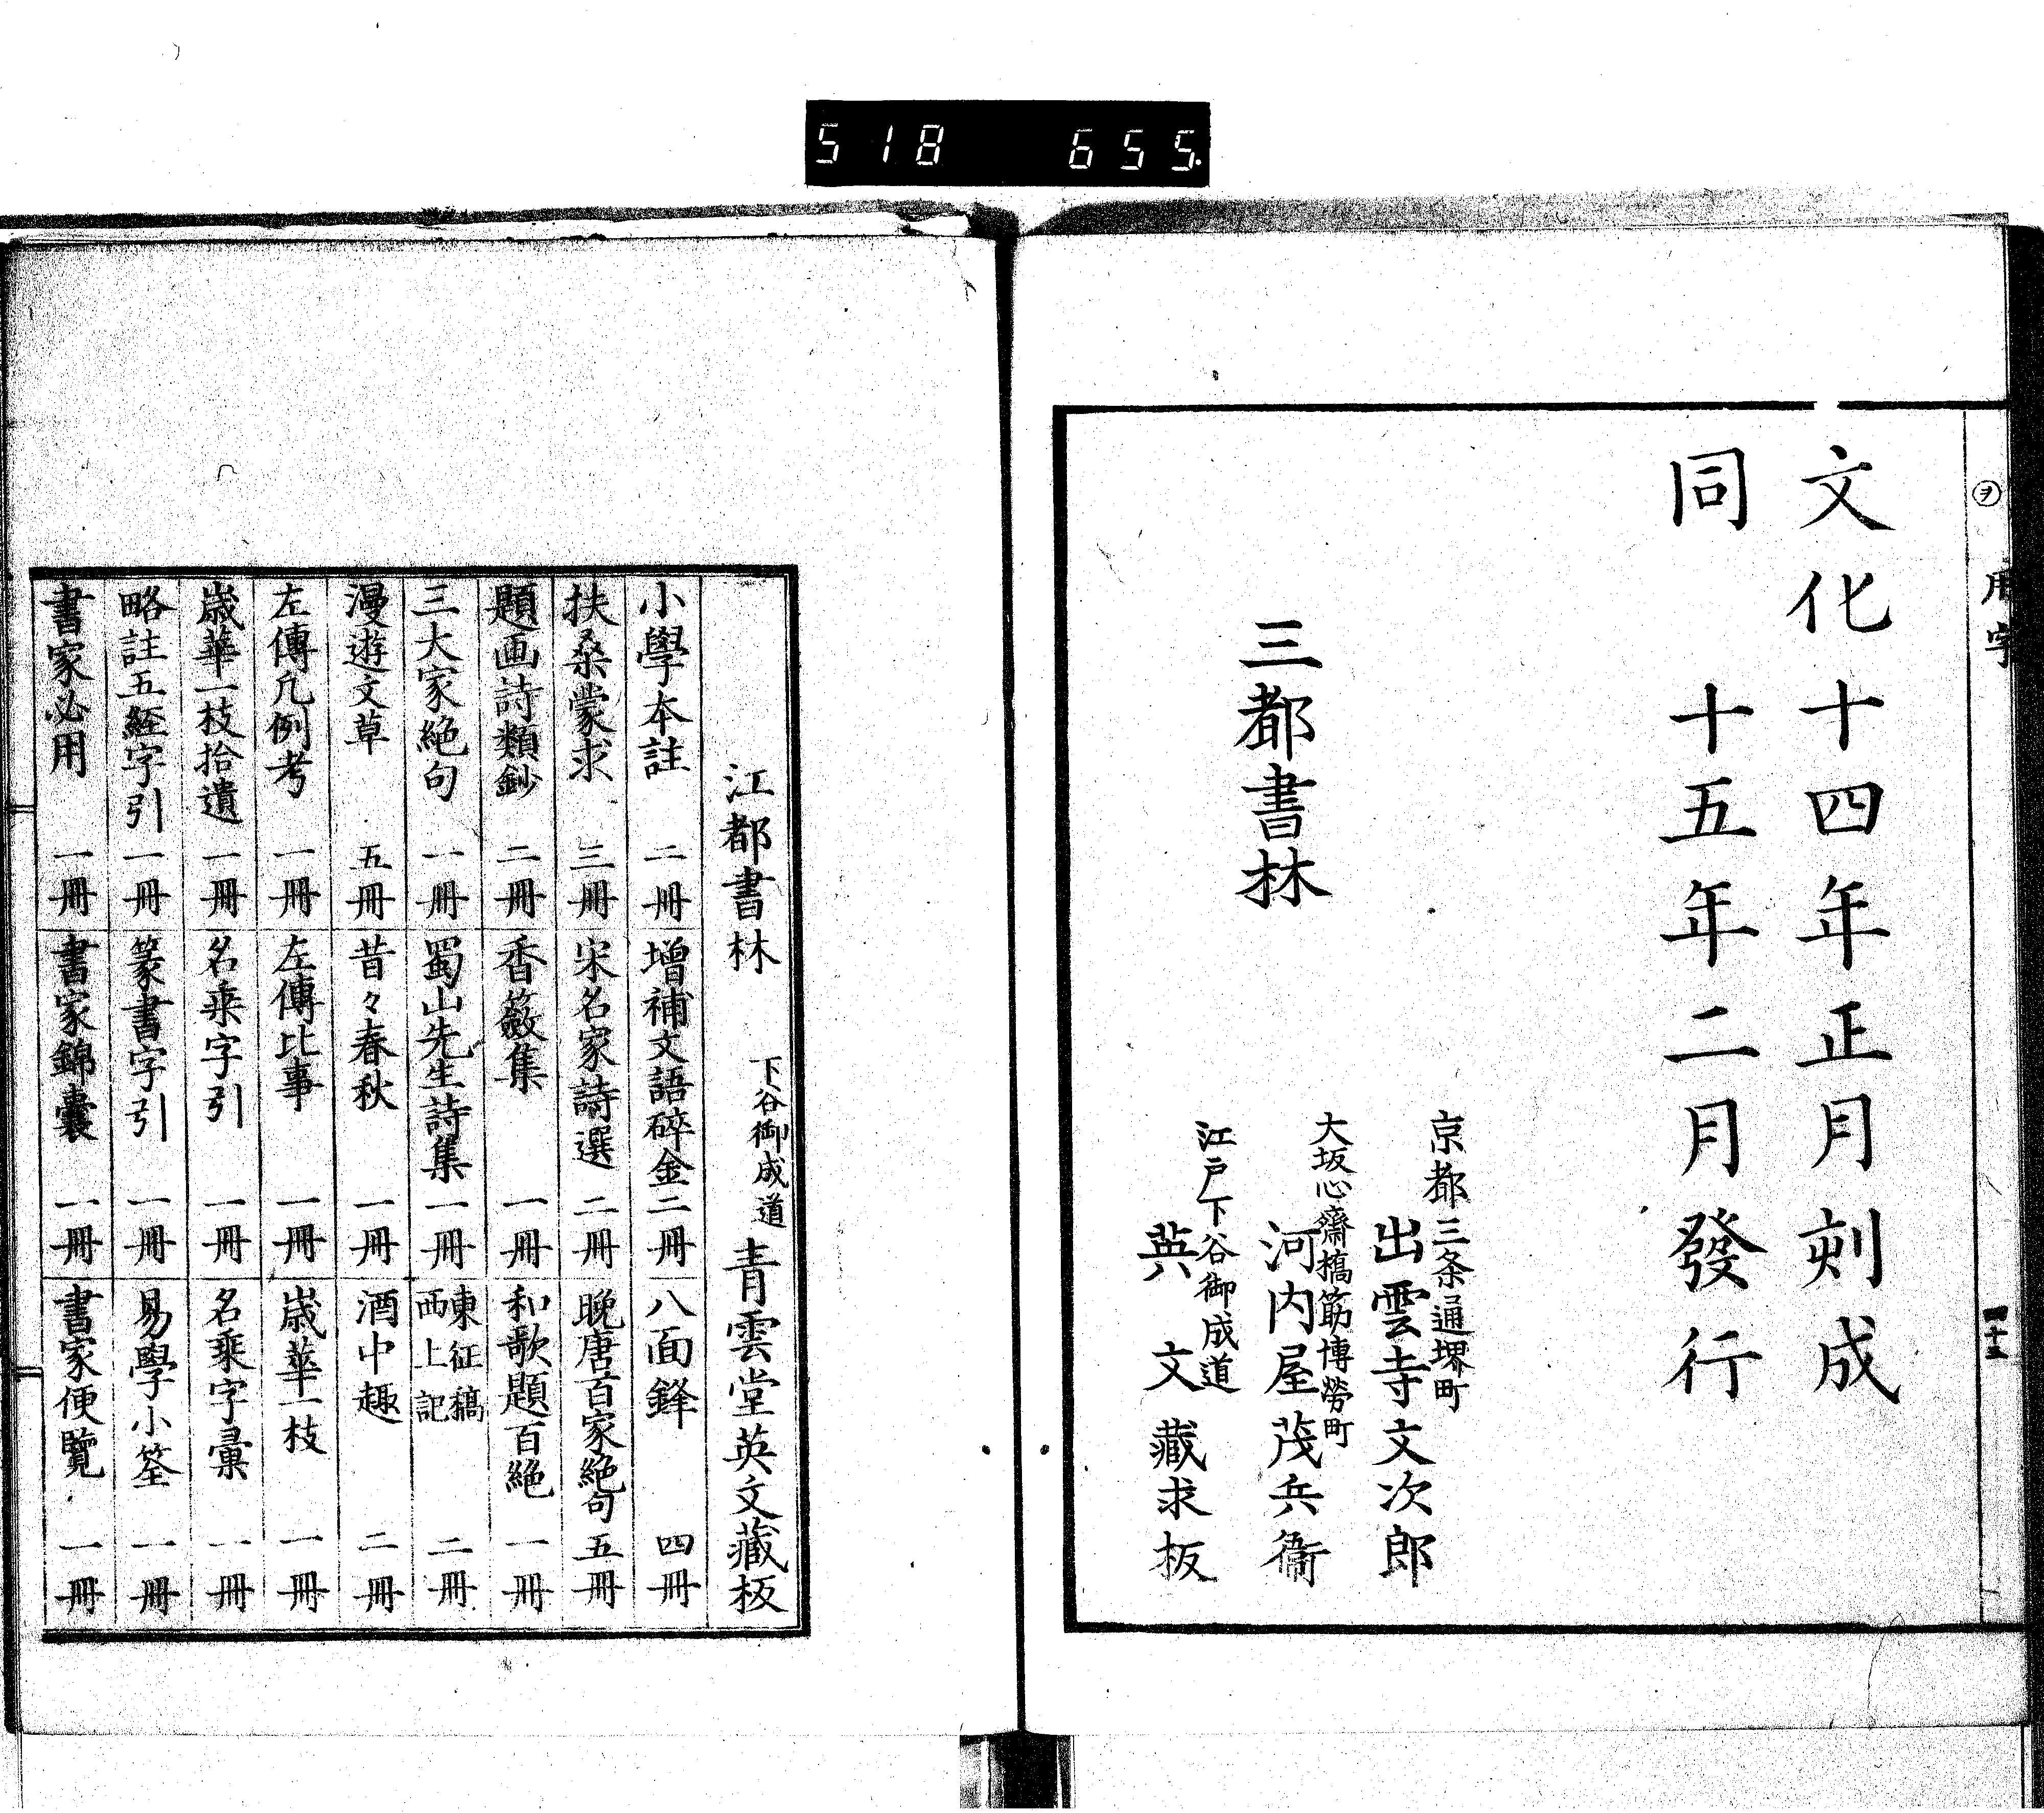 518 655
㋾ 用字 四十五
文化十四年正月刻成
同 十五年二月發行
三都書林
京都三条通堺町
出雲寺文次郎
大坂心齋橋筋博勞町
河内屋茂兵衞
江戸下谷御成道
英文藏求板
江都書林 下谷御成道 青雲堂英文藏板
小學本註 二冊
増補文語碎金 二冊
八面鋒 四冊
扶桑蒙求 三冊
宋名家詩選 二冊
晩唐百家絶句 五冊
題画詩類鈔 二冊
香籢集 一冊
和歌題百絶 一冊
三大家絶句 一冊
蜀山先生詩集 一冊
東征稿
西上記 二冊
漫遊文草 五冊
昔々春秋 一冊
酒中趣 二冊
左傳凡例考 一冊
左傳比事 一冊
歳華一枝 一冊
歳華一枝拾遺 一冊
名乗字引 一冊
名乗字彙 一冊
略註五經字引 一冊
篆書字引 一冊
易學小筌 一冊
書家必用 一冊
書家錦嚢 一冊
書家便覽 一冊